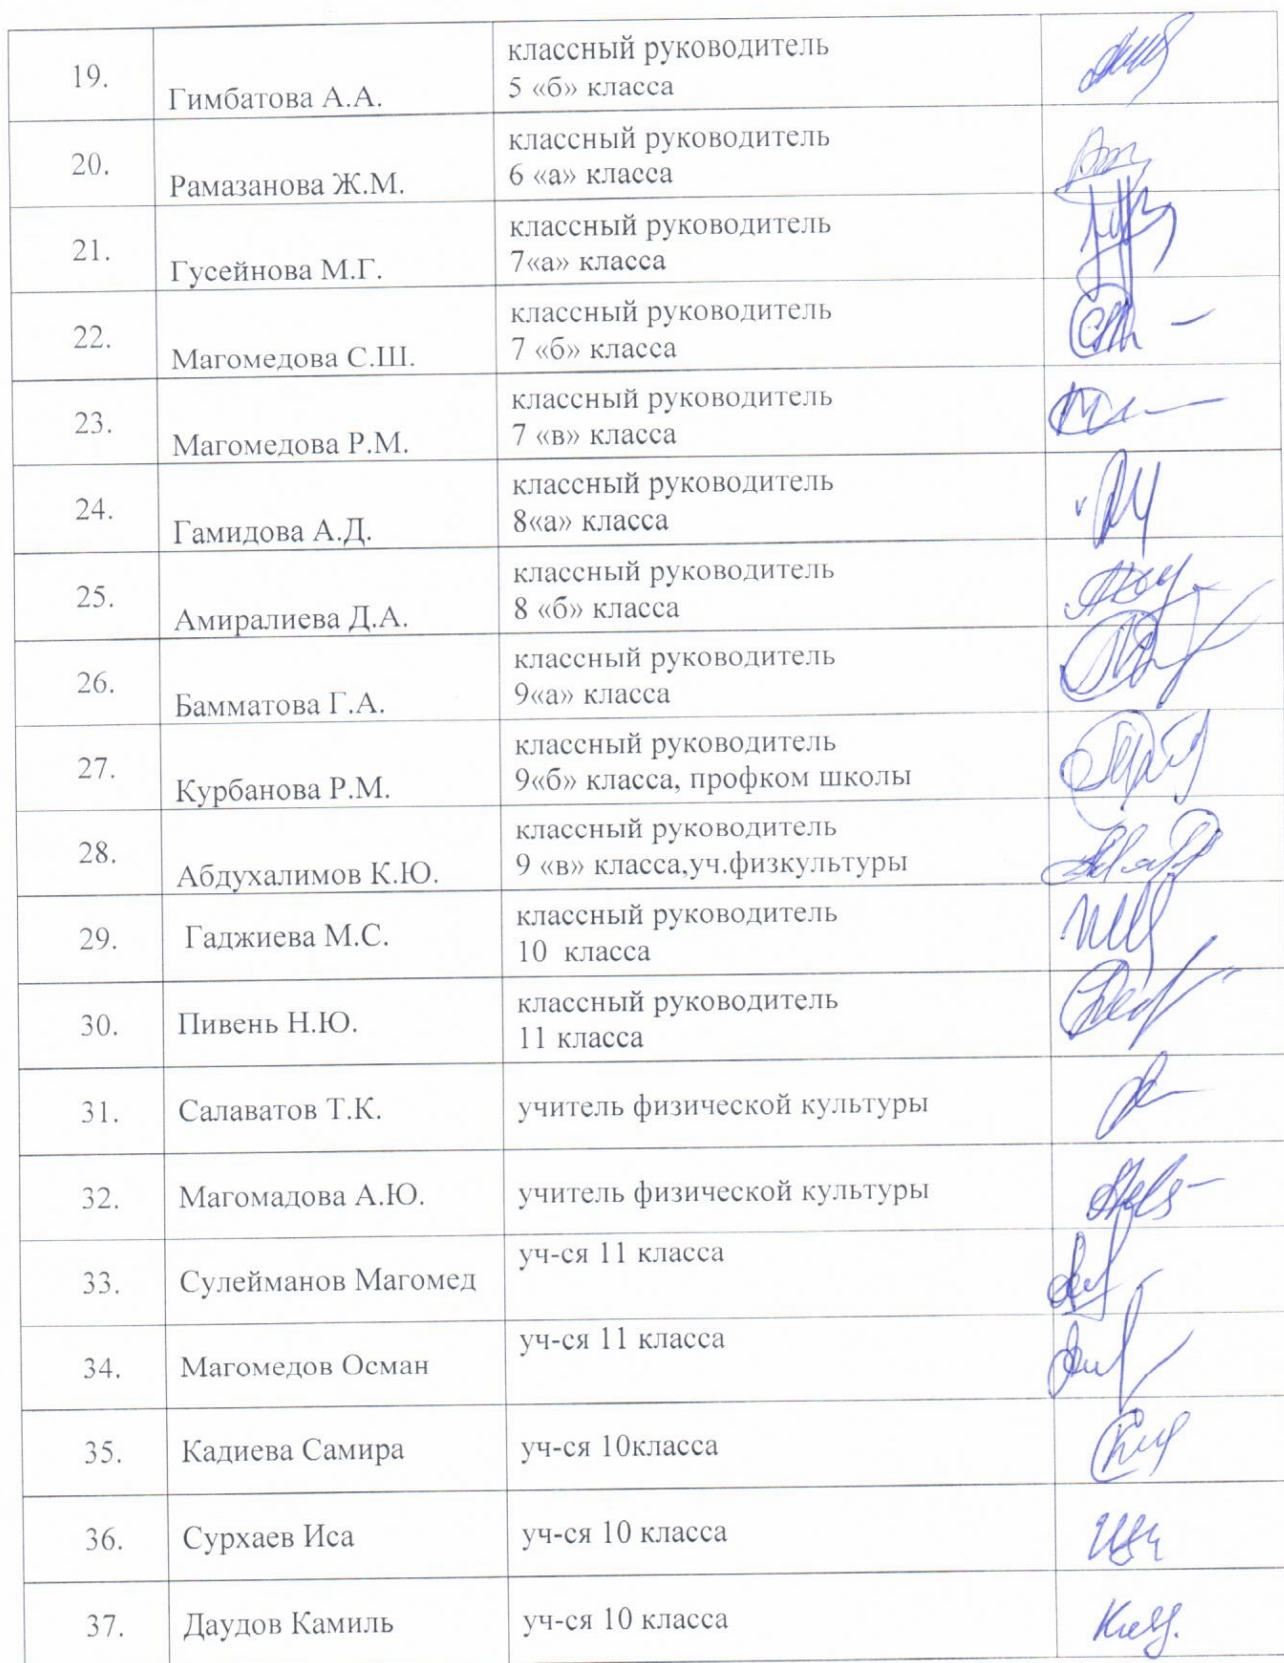 19.
Гимбатова А.А.
классный руководитель
5 «б» класса
20.
Рамазанова Ж.М.
классный руководитель
6 «а» класса
21.
Гусейнова М.Г.
классный руководитель
7«а» класса
22.
Магомедова С.Ш.
классный руководитель
7 «б» класса
23.
Магомедова Р.М.
классный руководитель
7 «в» класса
24.
Гамидова А.Д.
классный руководитель
8«а» класса
25.
Амиралиева Д.А.
классный руководитель
8 «б» класса
26.
Бамматова Г.А.
классный руководитель
9«а» класса
27.
Курбанова Р.М.
классный руководитель
9«б» класса, профком школы
28.
Абдухалимов К.Ю.
классный руководитель
9 «в» класса,уч.физкультуры
29.
Гаджиева М.С.
классный руководитель
10 класса
30.
Пивень Н.Ю.
классный руководитель
11 класса
31.
Салаватов Т.К.
учитель физической культуры
32.
Магомадова А.Ю.
учитель физической культуры
33.
Сулейманов Магомед
уч-ся 11 класса
34.
Магомедов Осман
уч-ся 11 класса
35.
Кадиева Самира
уч-ся 10класса
36.
Сурхаев Иса
уч-ся 10 класса
37.
Даудов Камиль
уч-ся 10 класса